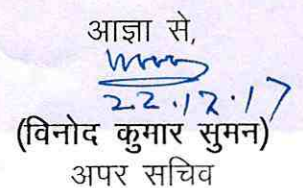 आज्ञा से,
22.12.17
(विनोद कुमार सुमन)
अपर सचिव